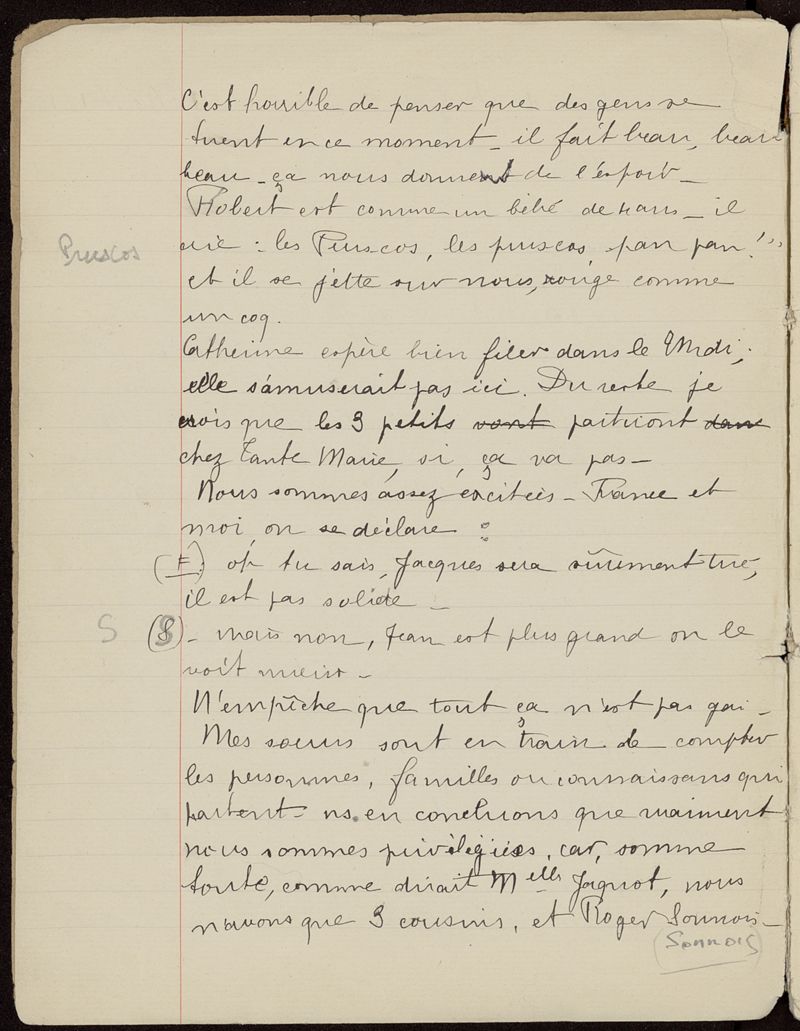 C'est horrible de penser que des gens se
tuent en ce moment - il fait beau, beau
beau - ça nous donnent de l'espoir -
Robert est comme un bébé de 2 ans - il
crie : les Pruscos, les pruscos, pan pan !"
Pruscos
et il se jette sur nous, rouge comme
un coq.
Catherine espère bien filer dans le Midi,
elle s'amuserait pas ici. Du reste je
crois que les 3 petits vont partiront dans
chez Tante Marie, si, ça va pas -
Nous sommes assez excitées - France et
moi, on se déclare :
(F). oh tu sais, Jacques sera sûrement tué,
il est pas solide -
S (S) - mais non, Jean est plus grand on le
voit mieux -
N'empêche que tout ça n'est pas gai -
Mes sœurs sont en train de compter
les personnes, familles ou connaissans qui
partent - ns. en concluons que vraiment
nous sommes privilégiées, car, somme
toute, comme dirait Melle Jaquot, nous
n'avons que 3 cousins, et Roger Sonnois -
(Sonnois)